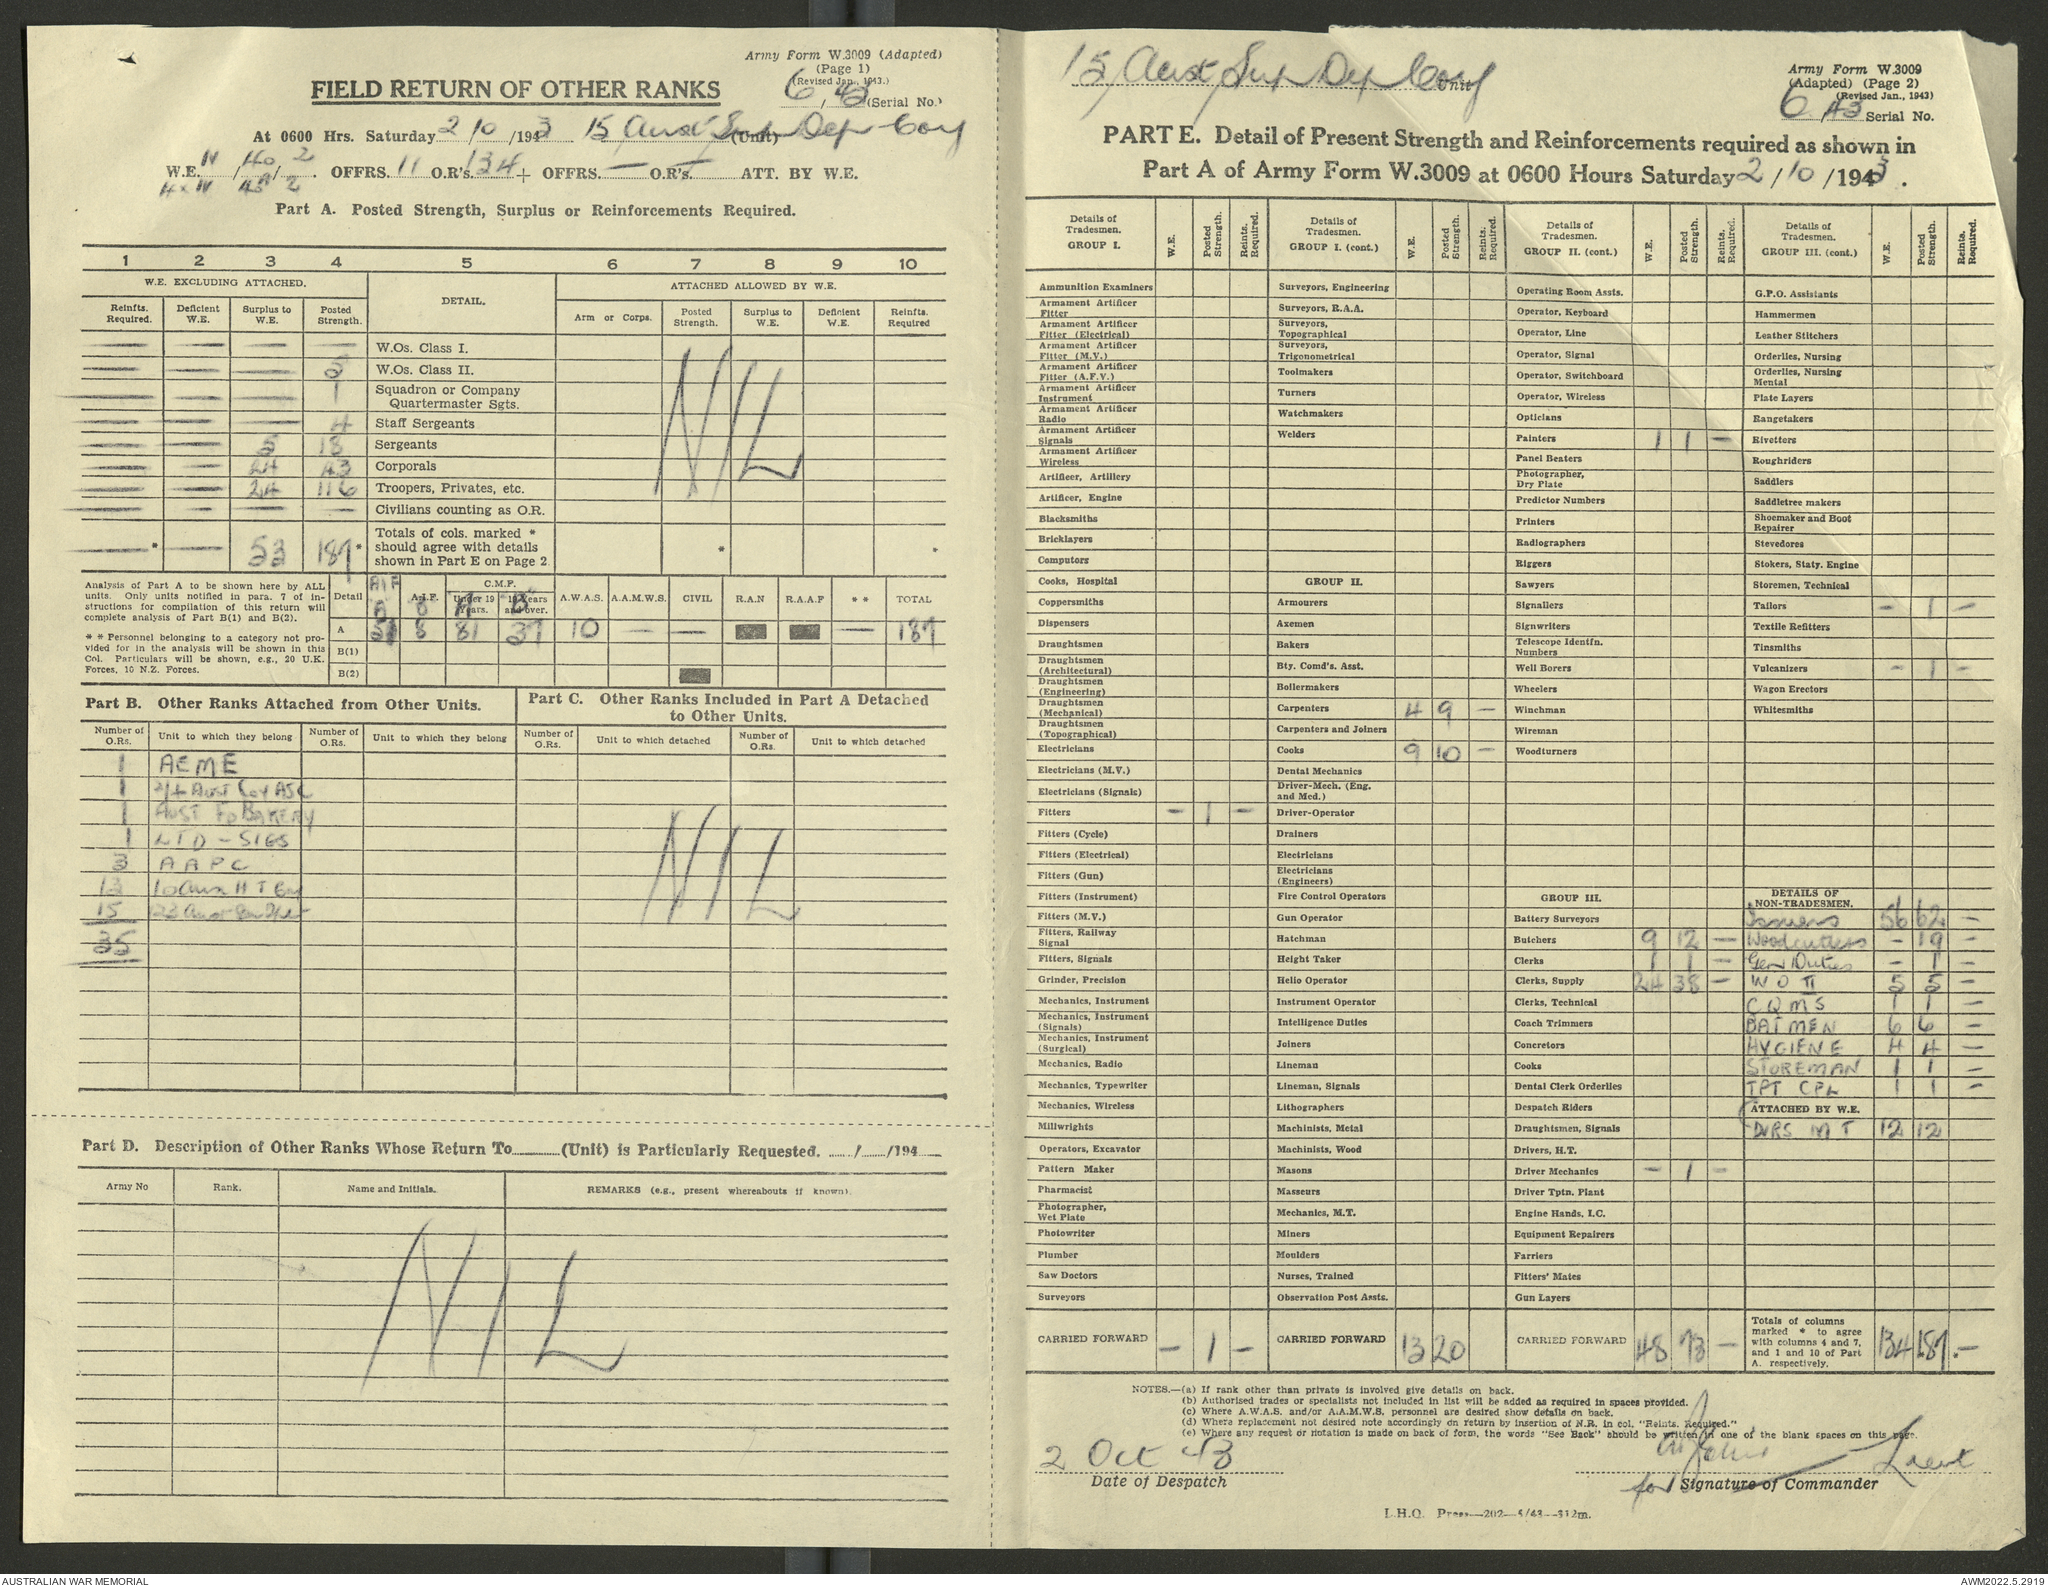 Army Form W.3009 (Adapted)
(Page 1)
(Revised Jan., 1943.)
FIELD RETURN OF OTHER RANKS
6/43 (Serial No.)
At 0600 Hrs. Saturday 2/10/1943 15 Aust Sup Dep Coy (Unit)
W.E. IV/40/2 OFFRS. 11 O.R's. 134 + OFFRS. — O.R's. — ATT. BY W.E.
Part A. Posted Strength, Surplus or Reinforcements Required.
1 2 3 4 5 6 7 8 9 10
W.E. EXCLUDING ATTACHED. DETAIL. ATTACHED ALLOWED BY W.E.
Reinfts. Required. Deficient W.E. Surplus to W.E. Posted Strength. Arm or Corps. Posted Strength. Surplus to W.E. Deficient W.E. Reinfts. Required
— — — — W.Os. Class I.
— — — 5 W.Os. Class II.
— — — 1 Squadron or Company Quartermaster Sgts.
— — — 4 Staff Sergeants
— — 5 18 Sergeants
— — 24 43 Corporals
— — 24 116 Troopers, Privates, etc.
— — — — Civilians counting as O.R.
NIL
—* — 53 187* Totals of cols. marked * should agree with details shown in Part E on Page 2. * *
Analysis of Part A to be shown here by ALL units. Only units notified in para. 7 of instructions for compilation of this return will complete analysis of Part B(1) and B(2).
* * Personnel belonging to a category not provided for in the analysis will be shown in this Col. Particulars will be shown, e.g., 20 U.K. Forces, 10 N.Z. Forces.
Detail AIF A A.I.F. B C.M.F. Under 19 Years. A 19 Years and over. B A.W.A.S. A.A.M.W.S. CIVIL R.A.N R.A.A.F * * TOTAL
A 51 8 81 37 10 — — — 187
B(1)
B(2)
Part B. Other Ranks Attached from Other Units.
Number of O.Rs. Unit to which they belong Number of O.Rs. Unit to which they belong
1 AEME
1 2/4 Aust Coy ASC
1 AUST FD BAKERY
1 LTD - SIGS
3 AAPC
13 10 Aust H T Coy
15
35
Part C. Other Ranks Included in Part A Detached to Other Units.
Number of O.Rs. Unit to which detached Number of O.Rs. Unit to which detached
NIL
Part D. Description of Other Ranks Whose Return To (Unit) is Particularly Requested. / /194
Army No Rank. Name and Initials. REMARKS (e.g., present whereabouts if known).
NIL
15 Aust Sup Dep Coy Unit
Army Form W.3009
(Adapted) (Page 2)
(Revised Jan., 1943)
6/43 Serial No.
PART E. Detail of Present Strength and Reinforcements required as shown in
Part A of Army Form W.3009 at 0600 Hours Saturday 2/10/1943.
Details of Tradesmen. GROUP I. W.E. Posted Strength. Reinfts. Required.
Ammunition Examiners
Armament Artificer Fitter
Armament Artificer Fitter (Electrical)
Armament Artificer Fitter (M.V.)
Armament Artificer Fitter (A.F.V.)
Armament Artificer Instrument
Armament Artificer Radio
Armament Artificer Signals
Armament Artificer Wireless
Artificer, Artillery
Artificer, Engine
Blacksmiths
Bricklayers
Computors
Cooks, Hospital
Coppersmiths
Dispensers
Draughtsmen
Draughtsmen (Architectural)
Draughtsmen (Engineering)
Draughtsmen (Mechanical)
Draughtsmen (Topographical)
Electricians
Electricians (M.V.)
Electricians (Signals)
Fitters — 1 —
Fitters (Cycle)
Fitters (Electrical)
Fitters (Gun)
Fitters (Instrument)
Fitters (M.V.)
Fitters, Railway Signal
Fitters, Signals
Grinder, Precision
Mechanics, Instrument
Mechanics, Instrument (Signals)
Mechanics, Instrument (Surgical)
Mechanics, Radio
Mechanics, Typewriter
Mechanics, Wireless
Millwrights
Operators, Excavator
Pattern Maker
Pharmacist
Photographer, Wet Plate
Photowriter
Plumber
Saw Doctors
Surveyors
CARRIED FORWARD — 1 —
Details of Tradesmen. GROUP I. (cont.) W.E. Posted Strength. Reinfts. Required.
Surveyors, Engineering
Surveyors, R.A.A.
Surveyors, Topographical
Surveyors, Trigonometrical
Toolmakers
Turners
Watchmakers
Welders
GROUP II.
Armourers
Axemen
Bakers
Bty. Comd's. Asst.
Boilermakers
Carpenters 4 9 —
Carpenters and Joiners
Cooks 9 10 —
Dental Mechanics
Driver-Mech. (Eng. and Med.)
Driver-Operator
Drainers
Electricians
Electricians (Engineers)
Fire Control Operators
Gun Operator
Hatchman
Height Taker
Helio Operator
Instrument Operator
Intelligence Duties
Joiners
Lineman
Lineman, Signals
Lithographers
Machinists, Metal
Machinists, Wood
Masons
Masseurs
Mechanics, M.T.
Miners
Moulders
Nurses, Trained
Observation Post Assts.
CARRIED FORWARD 13 20
Details of Tradesmen. GROUP II. (cont.) W.E. Posted Strength. Reinfts. Required.
Operating Room Assts.
Operator, Keyboard
Operator, Line
Operator, Signal
Operator, Switchboard
Operator, Wireless
Opticians
Painters 1 1 —
Panel Beaters
Photographer, Dry Plate
Predictor Numbers
Printers
Radiographers
Riggers
Sawyers
Signallers
Signwriters
Telescope Identfn. Numbers
Well Borers
Wheelers
Winchman
Wireman
Woodturners
GROUP III.
Battery Surveyors
Butchers 9 12 —
Clerks 1 1 —
Clerks, Supply 24 38 —
Clerks, Technical
Coach Trimmers
Concretors
Cooks
Dental Clerk Orderlies
Despatch Riders
Draughtsmen, Signals
Drivers, H.T.
Driver Mechanics — 1 —
Driver Tptn. Plant
Engine Hands, I.C.
Equipment Repairers
Farriers
Fitters' Mates
Gun Layers
CARRIED FORWARD 48 73 —
Details of Tradesmen. GROUP III. (cont.) W.E. Posted Strength. Reinfts. Required.
G.P.O. Assistants
Hammermen
Leather Stitchers
Orderlies, Nursing
Orderlies, Nursing Mental
Plate Layers
Rangetakers
Rivetters
Roughriders
Saddlers
Saddletree makers
Shoemaker and Boot Repairer
Stevedores
Stokers, Staty. Engine
Storemen, Technical
Tailors — 1 —
Textile Refitters
Tinsmiths
Vulcanizers — 1 —
Wagon Erectors
Whitesmiths
DETAILS OF NON-TRADESMEN.
Issuers 56 62 —
Woodcutters — 19 —
Gen Duties — 1 —
W O II 5 5 —
C Q M S 1 1 —
BATMEN 6 6 —
HYGIENE 4 4 —
STOREMAN 1 1 —
TPT CPL 1 1 —
ATTACHED BY W.E.
DVRS M T 12 12
Totals of columns marked * to agree with columns 4 and 7, and 1 and 10 of Part A. respectively. 134 187 * —
NOTES.—(a) If rank other than private is involved give details on back.
(b) Authorised trades or specialists not included in list will be added as required in spaces provided.
(c) Where A.W.A.S. and/or A.A.M.W.S. personnel are desired show details on back.
(d) Where replacement not desired note accordingly on return by insertion of N.R. in col. "Reints. Required."
(e) Where any request or notation is made on back of form, the words "See Back" should be written in one of the blank spaces on this page.
2 Oct 43
Date of Despatch
Lieut
for Signature of Commander
L.H.Q. Press—202—5/43—312m.
AUSTRALIAN WAR MEMORIAL
AWM2022.5.2919